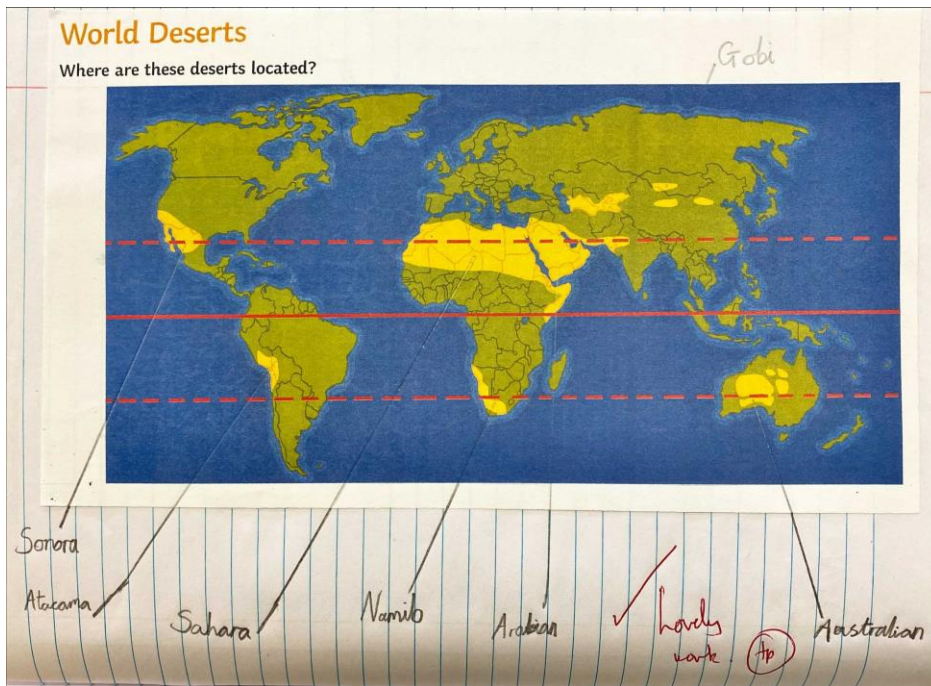 World Deserts
Where are these deserts located?
Gobi
Sonora
Atacama
Sahara
Namib
Arabian
Lovely
work.
Australian